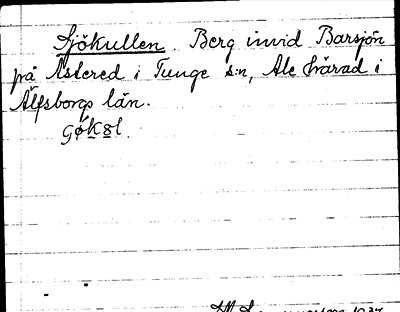 Sjökullen. Berg invid Barsjön
på Åstered i Tunge s:n, Ale härad i
Älfsborgs län.
Gøk8l.